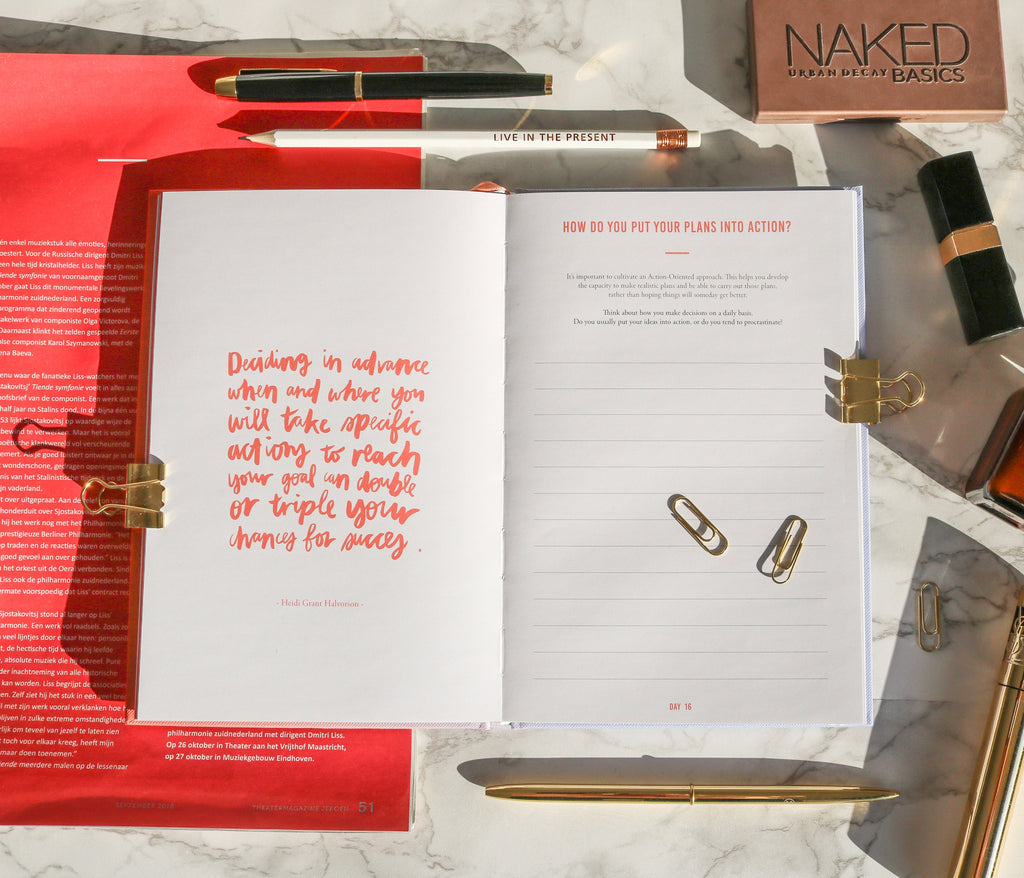 NAKED
URBAN DECAY BASICS
LIVE IN THE PRESENT
Deciding in advance
when and where you
will take specific
actions to reach
your goal can double
or triple your
chances for succes.
- Heidi Grant Halvorson -
HOW DO YOU PUT YOUR PLANS INTO ACTION?
It's important to cultivate an Action-Oriented approach. This helps you develop
the capacity to make realistic plans and be able to carry out those plans,
rather than hoping things will someday get better.
Think about how you make decisions on a daily basis.
Do you usually put your ideas into action, or do you tend to procrastinate?
DAY 16
én enkel muziekstuk alle emoties, herinneringe
oestert. Voor de Russische dirigent Dmitri Liss
een hele tijd kristalhelder. Liss heeft zijn muzik
tiende symfonie van voornaamgenoot Dmitri
ober gaat Liss dit monumentale lievelingswerk
harmonie zuidnederland. Een zorgvuldig
programma dat zinderend geopend wordt
akelwerk van componiste Olga Victorova, de
Daarnaast klinkt het zelden gespeelde Eerste
olse componist Karol Szymanowski, met de
ena Baeva.
enu waar de fanatieke Liss-watchers het me
stakovitsj' Tiende symfonie voelt in alles aan
ofsbrief van de componist. Een werk dat in
half jaar na Stalins dood. In de bijna één uu
53 lijkt Sjostakovitsj op waardige wijze de
bewind te verwerken. Maar het is vooral
poëtische klankwereld vol verscheurende
emert. Als je goed luistert ontwaar je in de
wonderschone, gedragen openingsmo
nis van het Stalinistische tijdperk en de
jn vaderland.
t over uitgepraat. Aan de telefoon van
honderduit over Sjostakov
hij het werk nog met het Philharmo
prestigieuze Berliner Philharmonie. "Het
op traden en de reacties waren overweld
goed gevoel aan over gehouden." Liss is
n het orkest uit de Oeral verbonden. Sind
Liss ook de philharmonie zuidnederland.
ermate voorspoedig dat Liss' contract rec
Sjostakovitsj stond al langer op Liss'
armonie. Een werk vol raadsels. Zoals zo
veel lijntjes door elkaar heen: persoonli
t, de hectische tijd waarin hij leefde
, absolute muziek die hij schreef. Puré
der inachtneming van alle historische
kan worden. Liss begrijpt de associatie
en. Zelf ziet hij het stuk in een veel bre
met zijn werk vooral verklanken hoe h
blijven in zulke extreme omstandighede
rlijk om teveel van jezelf te laten zien
t toch voor elkaar kreeg, heeft mijn
maar doen toenemen."
iende meerdere malen op de lessenaar
philharmonie zuidnederland met dirigent Dmitri Liss.
Op 26 oktober in Theater aan het Vrijthof Maastricht,
op 27 oktober in Muziekgebouw Eindhoven.
SEPTEMBER 2018
THEATERMAGAZINE ZEKOEN 51